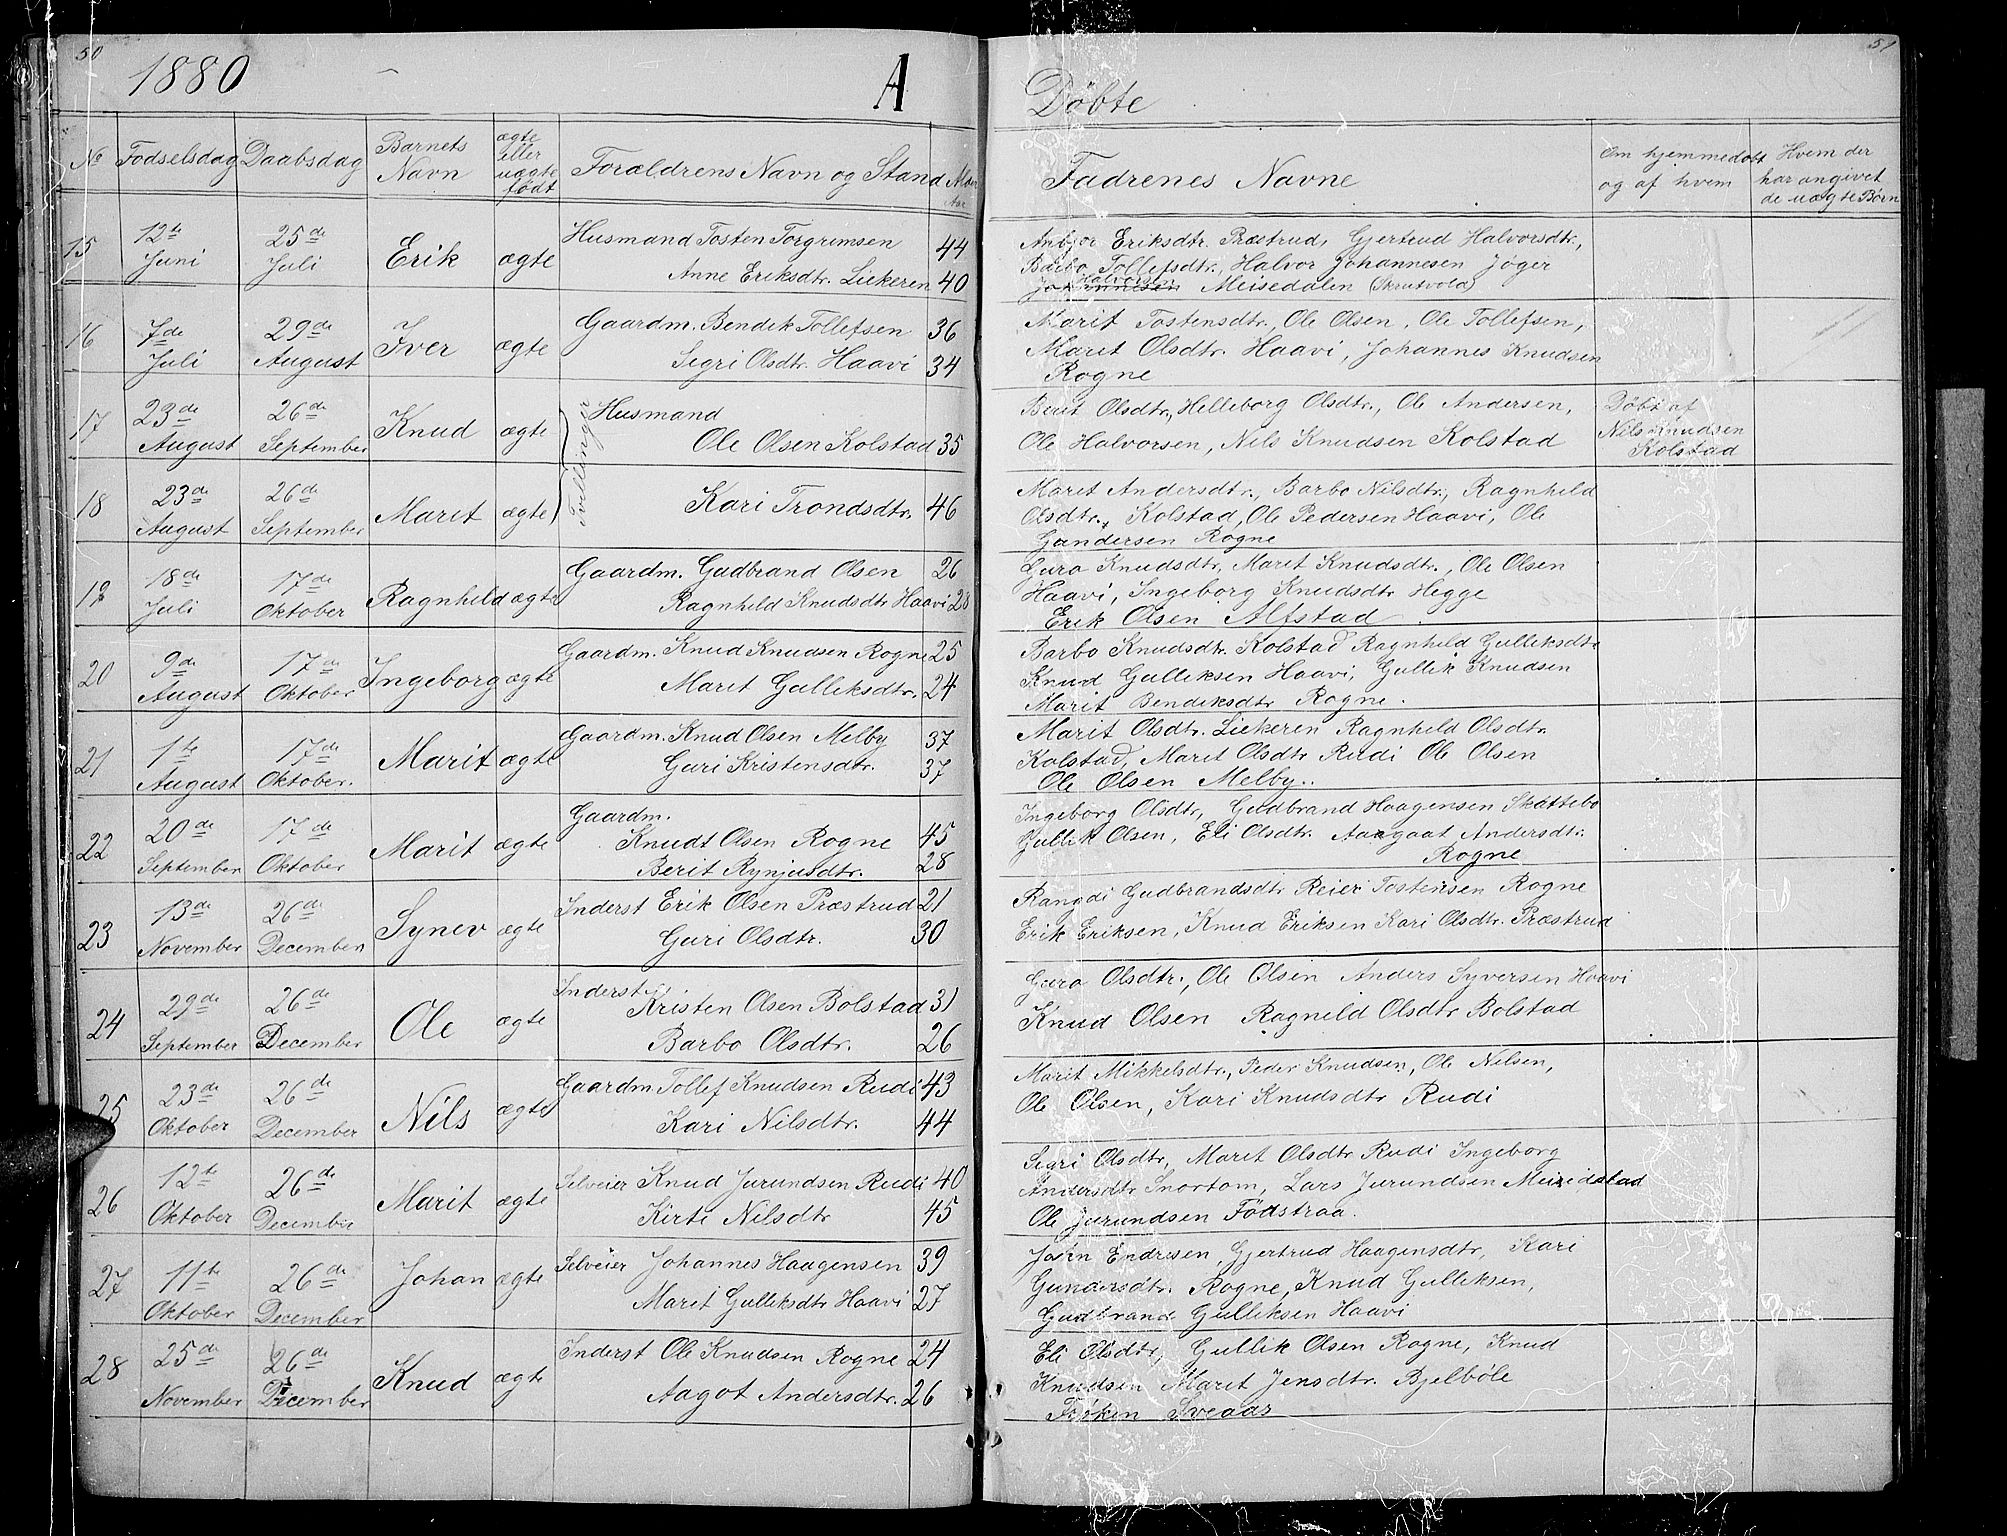 50
1880
A
№ Fødselsdag Daabsdag Barnets Navn ægte eller uægte født Forældrens Navn og Stand Alder Aar
15 12te Juni 25de Juli Erik ægte Husmand Tosten Torgrimsen 44
Anne Eriksdtr. Liekeren 40
16 7de Juli 29de August Iver ægte Gaardm. Bendik Tollefsen 36
Segri Olsdtr. Haavi 34
17 23de August 26de September Knud ægte Tvillinger Husmand
Ole Olsen Kolstad 35
18 23de August 26de September Marit ægte Kari Trondsdtr. 46
19 18de Juli 17de Oktober Ragnhild ægte Gaardm. Gudbrand Olsen 26
Ragnhild Knudsdtr Haavi 28
20 9de August 17de Oktober Ingeborg ægte Gaardm. Knud Knudsen Rogne 25
Marit Gulliksdtr. 24
21 1te August 17de Oktober. Marit ægte Gaardm. Knud Olsen Melby 37
Guri Kristensdtr. 37
22 20de September 17de Oktober Marit ægte Gaardm.
Knudt Olsen Rogne 45
Berit Rynjusdtr. 28
23 13de November 26de December Synev ægte Inderst Erik Olsen Præstrud 21
Guri Olsdtr. 30
24 29de September 26de December Ole ægte Inderst Kristen Olsen Bolstad 31
Barbo Olsdtr. 26
25 23de Oktober 26de December Nils ægte Gaardm Tollef Knudsen Rudi 43
Kari Nilsdtr. 44
26 12te Oktober 26de December Marit ægte Selveier Knud Jurundsen Rudi 40
Kirti Nilsdtr 45
27 11te Oktober 26de December Johan ægte Selveier Johannes Haagensen 39
Marit Gulliksdtr Haavi 27
28 25de November 26de December Knud ægte Inderst Ole Knudsen Rogne 24
Aagot Andersdtr. 26
51
Døbte
Fadrenes Navne
Om hjemmedøbt og af hvem
Hvem der har angivet de uægte Børn
Anbjor Eriksdtr. Præstrud, Gjertrud Halvorsdtr.,
Barbo Tollefsdtr., Halvor Johannesen Jøger
Johannesen Halvorsen Meisedalen (Skrutvold)
Marit Tostensdtr., Ole Olsen, Ole Tollefsen,
Marit Olsdtr. Haavi, Johannes Knudsen
Rogne
Berit Olsdtr., Helleborg Olsdtr., Ole Andersen,
Ole Halvorsen, Nils Knudsen Kolstad
Døbt af
Nils Knudsen
Kolstad
Marit Andersdtr., Barbo Nilsdtr., Ragnhild
Olsdtr., Kolstad, Ole Pedersen Haavi, Ole
Gundersen Rogne
Guro Knudsdtr, Marit Knudsdtr., Ole Olsen
Haavi, Ingeborg Knudsdtr Hegge
Erik Olsen Alfstad
Barbo Knudsdtr. Kolstad Ragnhild Gulliksdtr
Knud Gulliksen Haavi, Gullik Knudsen
Marit Bendiksdtr Rogne.
Marit Olsdtr. Liekeren Ragnhild Olsdtr.
Kolstad, Marit Olsdtr Rudi Ole Olsen
Ole Olsen Melby.
Ingeborg Olsdtr, Gudbrand Haagensen Skattebo
Gullik Olsen, Eli Olsdtr. Aargaat Andersdtr.
Rogne
Rangdi Gudbrandsdtr Reier Tostensen Rogne
Erik Eriksen, Knud Eriksen Kari Olsdtr. Præstrud
Guro Olsdtr., Ole Olsen Anders Syversen Haavi
Knud Olsen Ragnild Olsdtr Bolstad
Marit Mikkelsdtr., Peder Knudsen, Ole Nilsen,
Ole Olsen, Kari Knudsdtr Rudi
Segri Olsdtr, Marit Olsdtr Rudi Ingeborg
Andersdtr Snortom, Lars Jurundsen
Ole Jurundsen Fødstraa.
John Endresen, Gjertrud Haagensdtr, Kari
Gundersdtr. Rogne, Knud Gulliksen,
Gudbrand Gulliksen Haavi
Eli Olsdtr, Gullik Olsen Rogne, Knud
Knudsen Marit Jensdtr. Bjelbøle
Frøken Sveaas